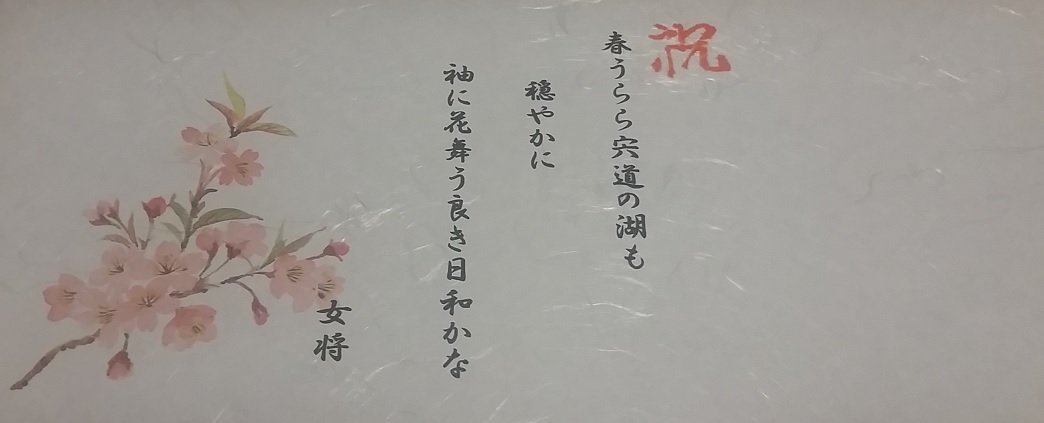 祝
春うらら宍道の湖も
穏やかに
袖に花舞う良き日和かな
女将